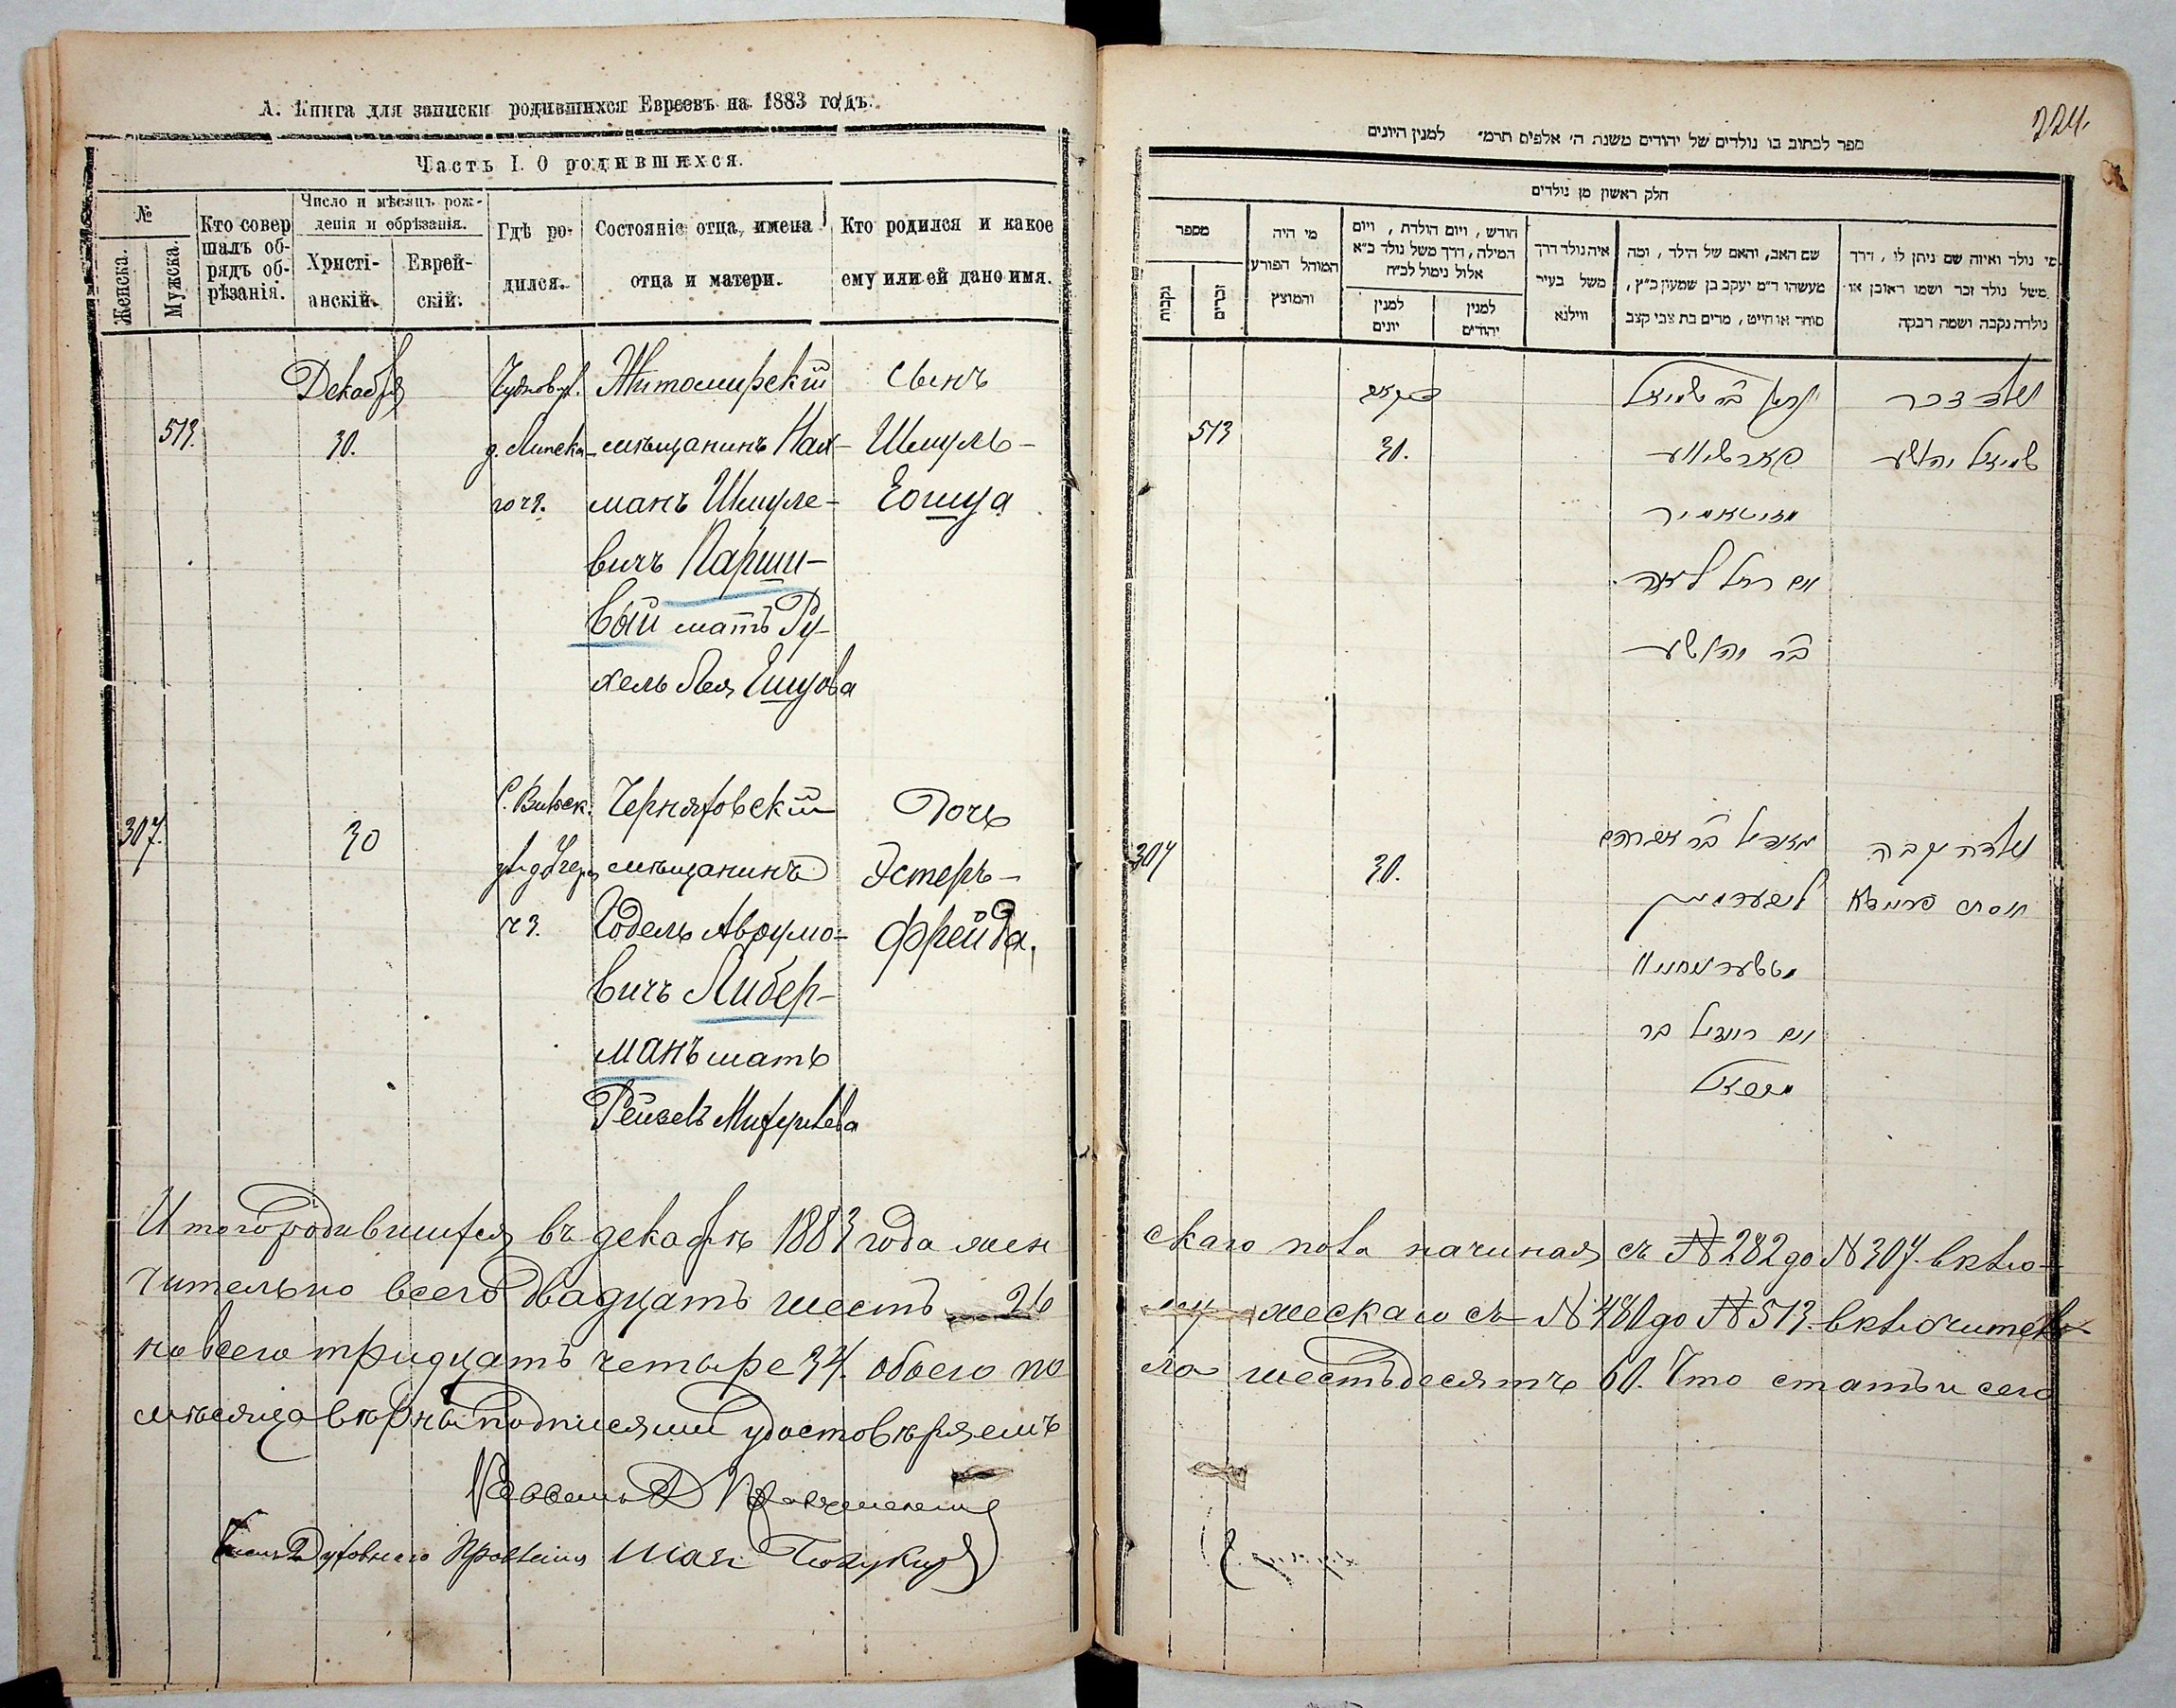 А. Книга для записки родившихся Евреевъ на 1883 годъ.
Часть I. О родившихся.
№
Женска.
Мужска.
Кто совер
шалъ об-
рядъ об-
рѣзанія.
Число и мѣсяцъ рож-
денія и обрѣзанія.
Христі-
анскій.
Еврей-
скій.
Гдѣ ро-
дился.
Состояніе отца, имена
отца и матери.
Кто родился и какое
ему или ей дано имя.
Декабря
513.
30.
д. Липска-
го чз.
Житомирскій
мѣщанинъ Нах-
манъ Шмуле-
вичъ Парши-
вый мать Ру-
хель Лея Ешуова
сынъ
Шмуль-
Еошуа
307.
30
С. Витек.
чз.
Черняховскій
мѣщанинъ
Годель Аврумо-
вичъ Либер-
манъ мать
Рейзель
Дочь
Эстеръ-
Фрейда.
Итого родившихся въ декабрѣ 1883 года жен
чительно всего двадцать шесть 26
но всего тридцать четыре 34. обоего по
мѣсяца вѣрны подписями удостовѣряемъ
Раввинъ
Членъ Духовнаго Правленія
224.
ספר לכתוב בו נולדים של יהודים משנת ה' אלפים תרמ" למנין היונים
חלק ראשון מן נולדים
מספר
נקבות
זכרים
מי היה
המוהל הפורע
והמוצץ
חודש, ויום הולדת, ויום
המילה, דרך משל נולד כ"א
אלול נימול לכ"ח
למנין
יונים
למנין
יהודים
איה נולד דרך
משל בעיר
ווילנא
שם האב, והאם של הילד, ומה
מעשהו ד"מ יעקב בן שמעון כ"ץ,
סוחר או חייט, מרים בת צבי קצב
מי נולד ואיזה שם ניתן לו, דרך
משל נולד זכר ושמו ראובן או
נולדה נקבה ושמה רבקה
513
דקאב
30.
נחמן בר שמואל
פארשיווע
זיטאמיר
אם רחל לאה
בר יהושע
נולד זכר
שמואל יהושע
307
30.
בר אברהם
ליבערמאן
אם רייזיל בר
נולדה נקבה
אסתר פריידא
скаго пола начиная съ № 282 до № 307. вклю-
мужескаго съ № 480 до № 513. включитель-
ла шестьдесятъ 60. Что статьи сего